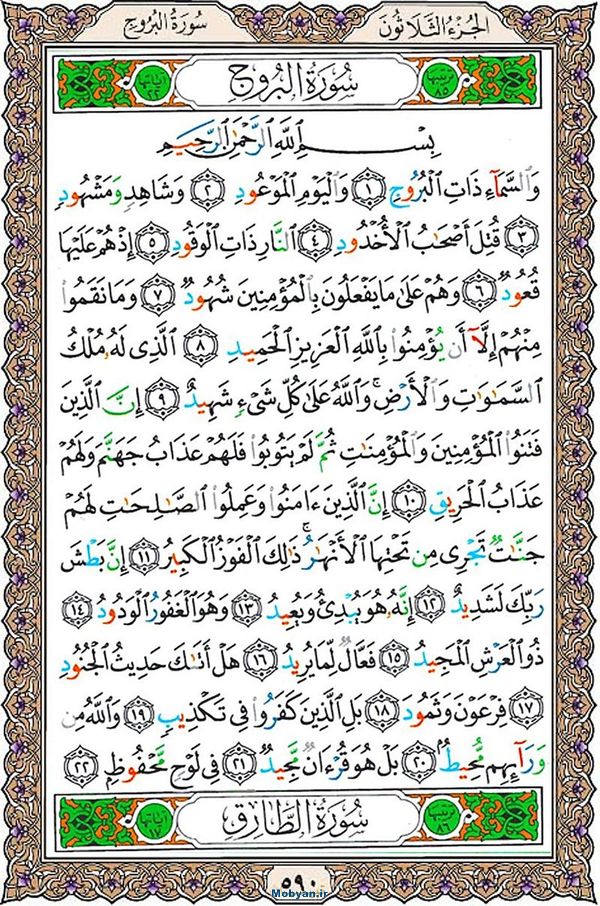 الجزء الثلاثون
سورة البروج
ترتيبها ٨٥
سورة البروج
آياتها ٢٢
بِسْمِ ٱللَّهِ ٱلرَّحْمَٰنِ ٱلرَّحِيمِ
وَٱلسَّمَآءِ ذَاتِ ٱلْبُرُوجِ ١ وَٱلْيَوْمِ ٱلْمَوْعُودِ ٢ وَشَاهِدٍ وَمَشْهُودٍ
٣ قُتِلَ أَصْحَٰبُ ٱلْأُخْدُودِ ٤ ٱلنَّارِ ذَاتِ ٱلْوَقُودِ ٥ إِذْ هُمْ عَلَيْهَا
قُعُودٌ ٦ وَهُمْ عَلَىٰ مَا يَفْعَلُونَ بِٱلْمُؤْمِنِينَ شُهُودٌ ٧ وَمَا نَقَمُوا۟
مِنْهُمْ إِلَّآ أَن يُؤْمِنُوا۟ بِٱللَّهِ ٱلْعَزِيزِ ٱلْحَمِيدِ ٨ ٱلَّذِى لَهُۥ مُلْكُ
ٱلسَّمَٰوَٰتِ وَٱلْأَرْضِ ۚ وَٱللَّهُ عَلَىٰ كُلِّ شَىْءٍ شَهِيدٌ ٩ إِنَّ ٱلَّذِينَ
فَتَنُوا۟ ٱلْمُؤْمِنِينَ وَٱلْمُؤْمِنَٰتِ ثُمَّ لَمْ يَتُوبُوا۟ فَلَهُمْ عَذَابُ جَهَنَّمَ وَلَهُمْ
عَذَابُ ٱلْحَرِيقِ ١٠ إِنَّ ٱلَّذِينَ ءَامَنُوا۟ وَعَمِلُوا۟ ٱلصَّٰلِحَٰتِ لَهُمْ
جَنَّٰتٌ تَجْرِى مِن تَحْتِهَا ٱلْأَنْهَٰرُ ۚ ذَٰلِكَ ٱلْفَوْزُ ٱلْكَبِيرُ ١١ إِنَّ بَطْشَ
رَبِّكَ لَشَدِيدٌ ١٢ إِنَّهُۥ هُوَ يُبْدِئُ وَيُعِيدُ ١٣ وَهُوَ ٱلْغَفُورُ ٱلْوَدُودُ ١٤
ذُو ٱلْعَرْشِ ٱلْمَجِيدُ ١٥ فَعَّالٌ لِّمَا يُرِيدُ ١٦ هَلْ أَتَىٰكَ حَدِيثُ ٱلْجُنُودِ
١٧ فِرْعَوْنَ وَثَمُودَ ١٨ بَلِ ٱلَّذِينَ كَفَرُوا۟ فِى تَكْذِيبٍ ١٩ وَٱللَّهُ مِن
وَرَآئِهِم مُّحِيطٌۢ ٢٠ بَلْ هُوَ قُرْءَانٌ مَّجِيدٌ ٢١ فِى لَوْحٍ مَّحْفُوظٍۭ ٢٢
ترتيبها ٨٦
سورة الطارق
آياتها ١٧
٥٩٠
Mobyan.ir